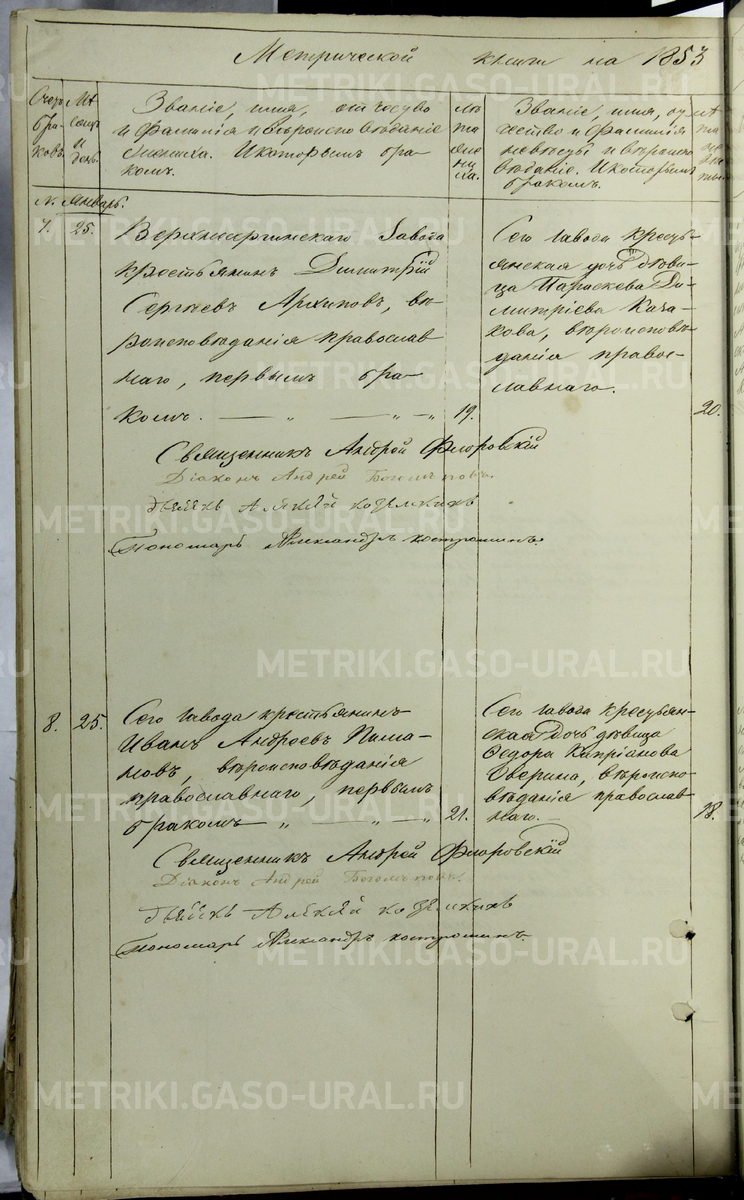 Метрической книги на 1853
Очередь браковъ.
Мѣсяцъ и день.
Званіе, имя, отчесво
и фамилія и вѣроисповѣданіе
жениха. И которымъ бра-
комъ.
лѣ-
та
же-
ни-
ха.
Званіе, имя, от
чество и фамилія
невѣсты и вѣроиспо
вѣданіе. И которымъ
бракомъ.
лѣ
та
не
вѣ
сты.
№. Январь.
7. 25.
Верхнесергинскаго завода
крестьянинъ Димитрій
Сергѣевъ Архиповъ, вѣ-
роисповѣданія православ
наго, первымъ бра-
комъ. 19.
Сего завода кресть-
янская дочь дѣви-
ца Параскева Ди-
митріева Каза-
кова, вѣроисповѣ-
данія правос-
лавнаго.
20.
Священникъ Андрей Флоровскій
Діаконъ Андрей
Алѣксѣй
Пономарь Александръ костромин.
8. 25.
Сего завода крестьянинъ
Иванъ Андреевъ Пима-
новъ, вѣроисповѣданія
православнаго, первымъ
бракомъ 21.
Сего завода крестьян-
ская дочь дѣвица
Ѳедора Кипріанова
Оверина, вѣроиспо-
вѣданія православ
наго.
18.
Священникъ Андрей Флоровскій
Діаконъ Андрей
Алѣксѣй
Пономарь Александръ костромин.
METRIKI.GASO-URAL.RU